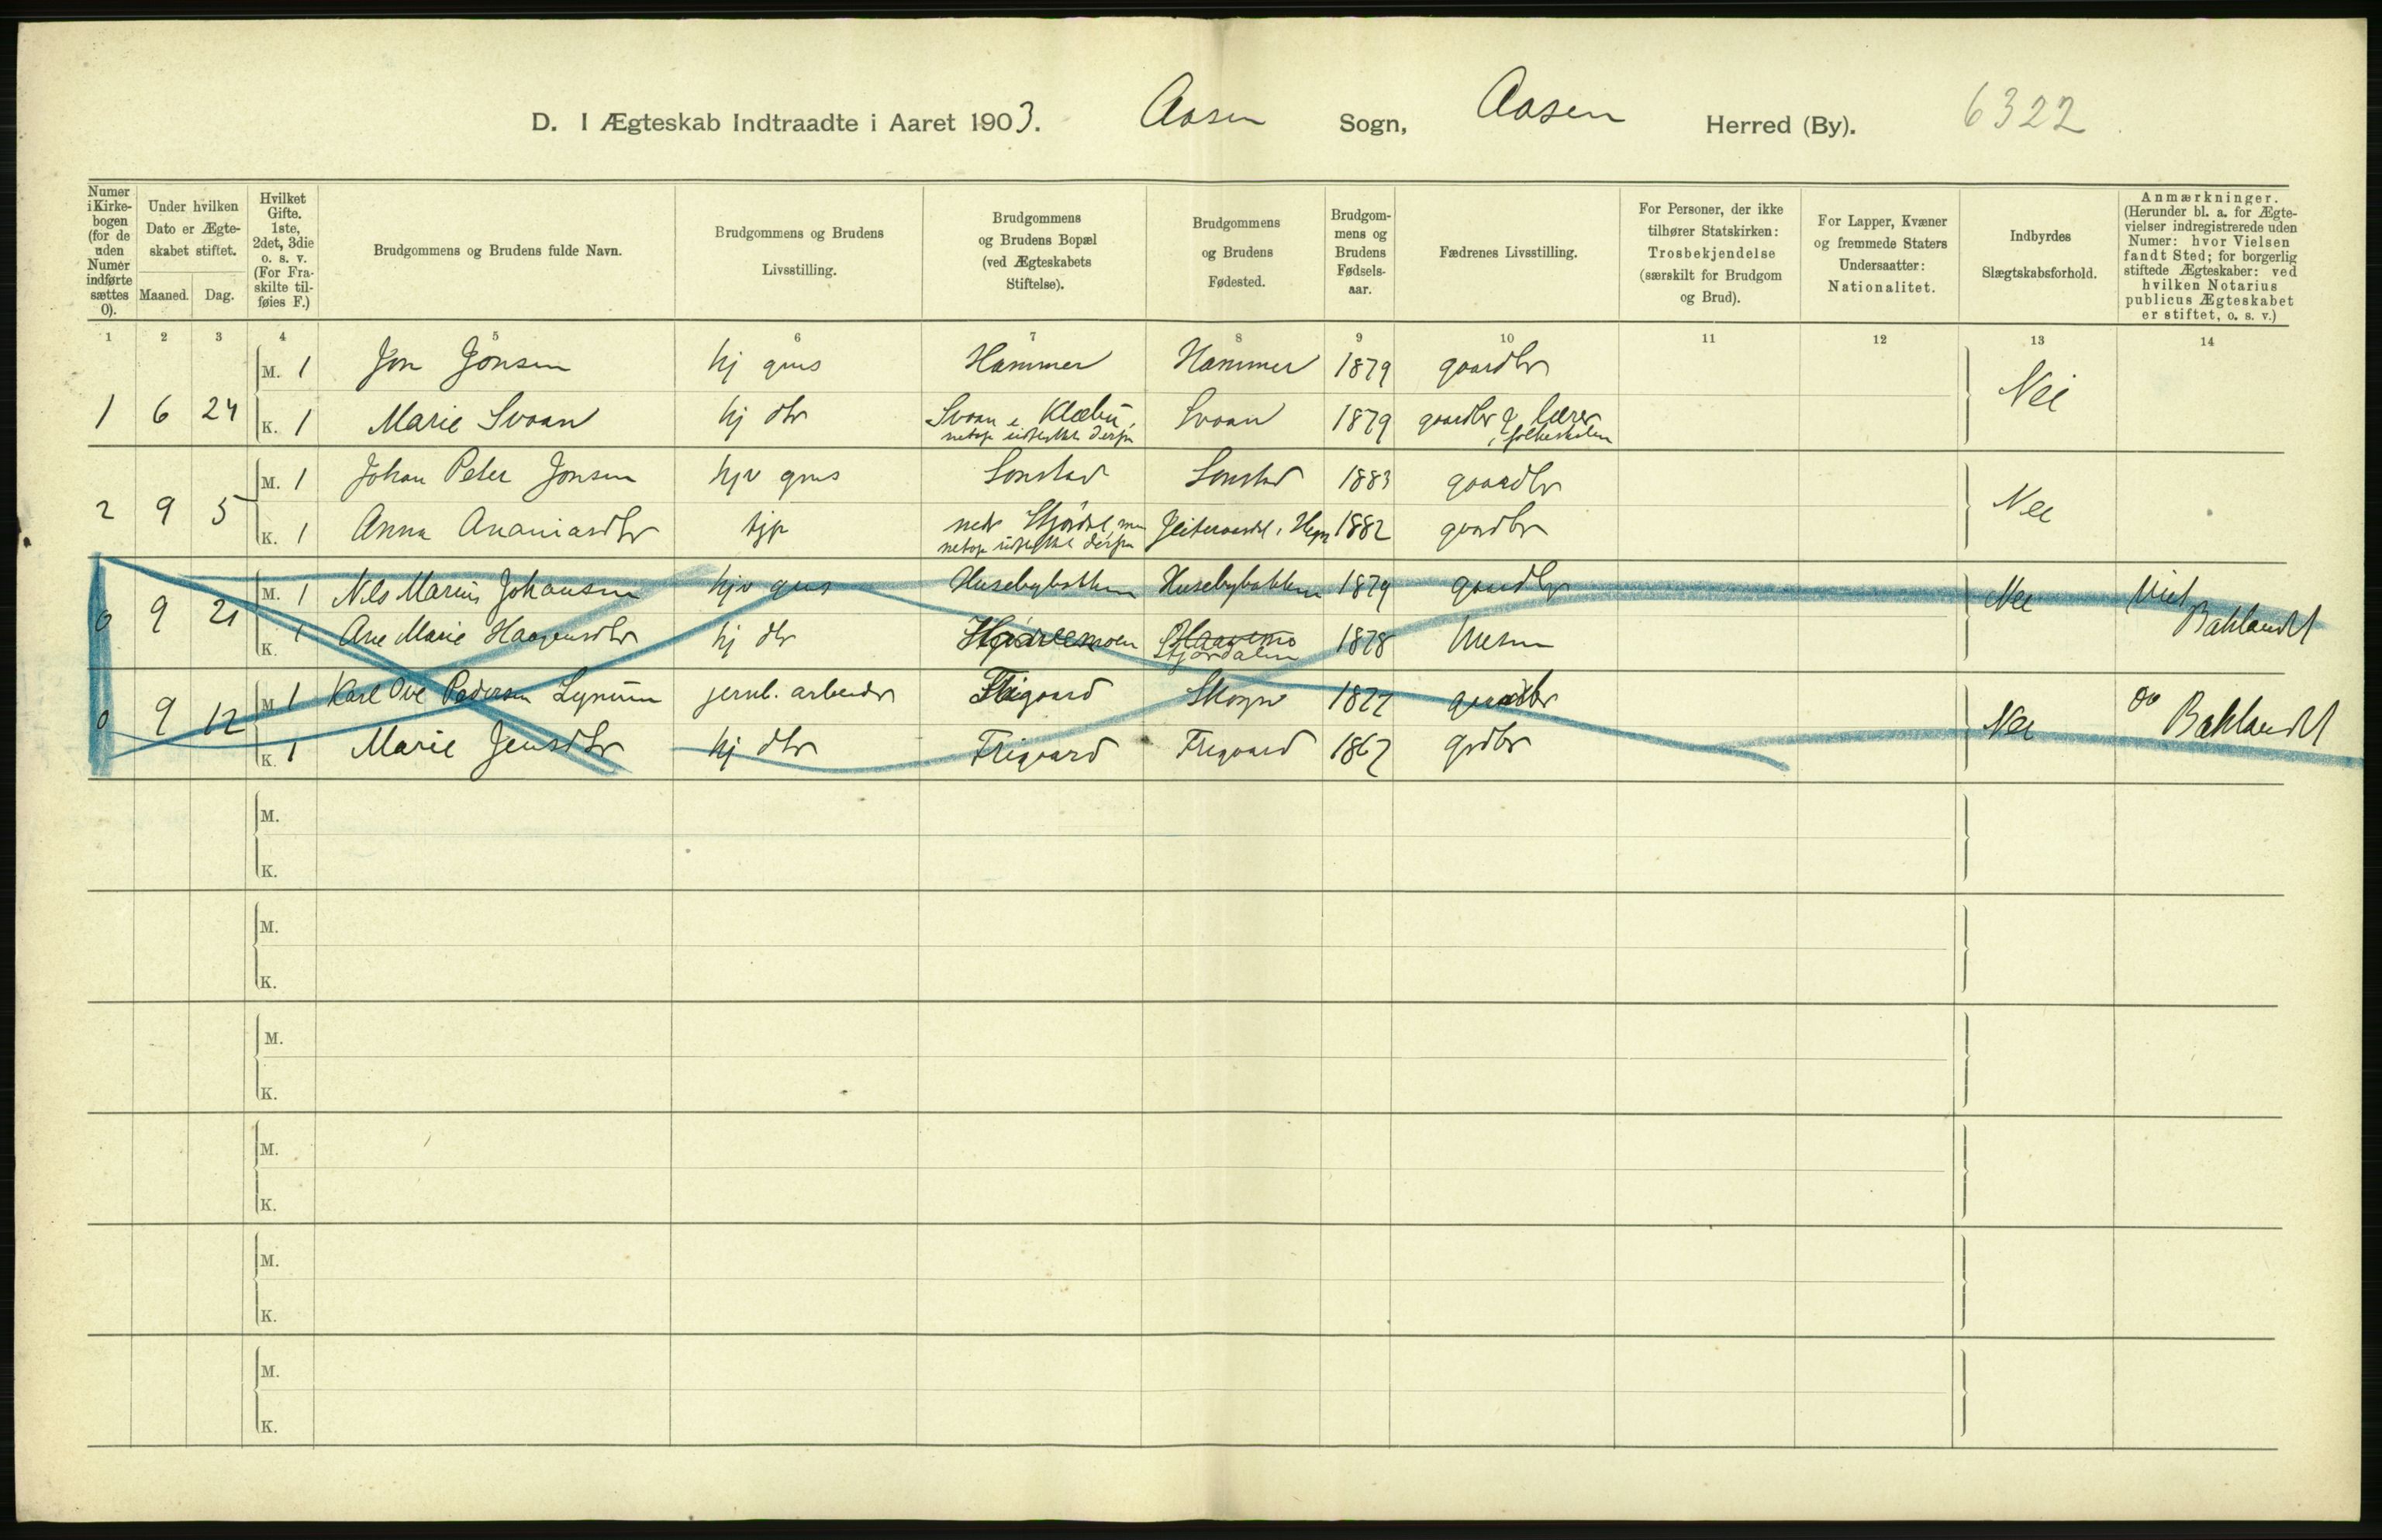 D. I Ægteskab Indtraadte i Aaret 1903. Aasen Sogn, Aasen Herred (By). 6322
Numer i Kirkebogen (for de uden Numer indførte sættes 0).
Under hvilken Dato er Ægteskabet stiftet.
Maaned. Dag.
Hvilket Gifte. 1ste, 2det, 3die o. s. v. (For Fraskilte tilføies F.)
Brudgommens og Brudens fulde Navn.
Brudgommens og Brudens Livsstilling.
Brudgommens og Brudens Bopæl (ved Ægteskabets Stiftelse).
Brudgommens og Brudens Fødested.
Brudgommens og Brudens Fødselsaar.
Fædrenes Livsstilling.
For Personer, der ikke tilhører Statskirken: Trosbekjendelse (særskilt for Brudgom og Brud).
For Lapper, Kvæner og fremmede Staters Undersaatter: Nationalitet.
Indbyrdes Slægtskabsforhold.
Anmærkninger. (Herunder bl. a. for Ægtevielser indregistrerede uden Numer: hvor Vielsen fandt Sted; for borgerlig stiftede Ægteskaber: ved hvilken Notarius publicus Ægteskabet er stiftet, o. s. v.)
1 2 3 4 5 6 7 8 9 10 11 12 13 14
M. 1 Jon Jonsen hj gms Hammer Hammer 1879 gaardbr
1 6 24 K. 1 Marie Svaan hj dtr Svaan i Klæbu, Svaan 1879 gaardbr & lærer Nei
netop udflyttet derfra i folkeskolen
M. 1 Johan Peter Jonsen hjv gms Sonstad Sonstad 1883 gaardbr
2 9 5 K. 1 Anna Ananiasdtr tjp nedr Stjørdal, men 1882 gaardbr Nei
netop udflyttet derfra
M. 1 Nils Marius Johansen hjv gms Husebybakken Husebybakken 1879 gaardbr Viet
0 9 21 K. 1 Ane Marie Haagensdtr hj dtr Stjørdalen 1878 Nei Baklandet
M. 1 Karl Ove Pedersen Lynum jernb. arbeider Frigaard Skogn 1877 gaardbr
0 9 12 K. 1 Marie Jensdtr hj dtr Frigaard Frigaard 1867 grdbr Nei Do Baklandet
M.
K.
M.
K.
M.
K.
M.
K.
M.
K.
M.
K.